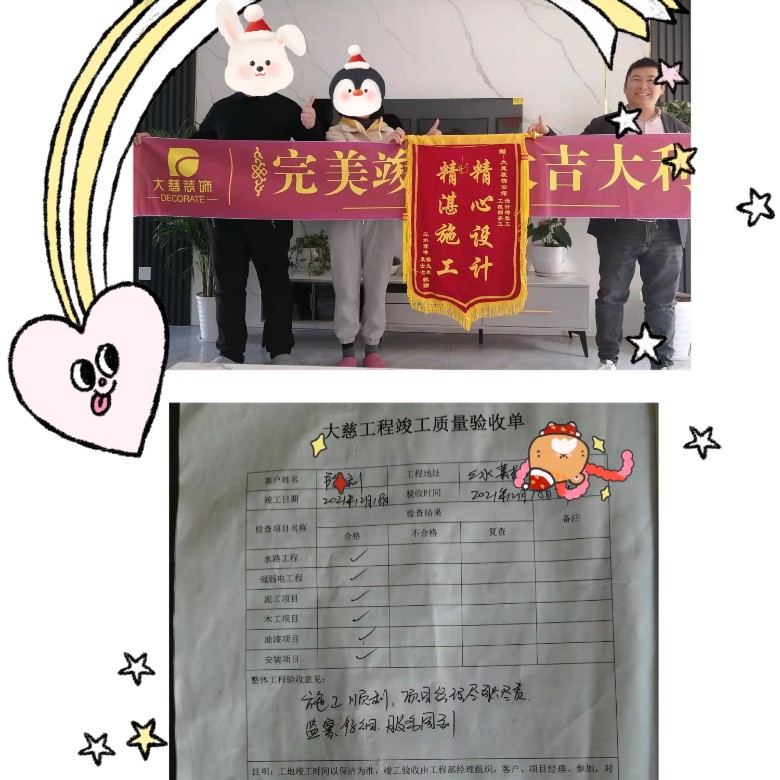 大慈装饰
DECORATE
完美竣
吉大利
赠：大慈装饰公司
精心设计
精湛施工
大慈工程竣工质量验收单
客户姓名
工程地址 三水
竣工日期 2021年12月18日 验收时间 2021年12月18日
检查项目名称 检查结果 备注
合格 不合格 复查
水路工程 ✓
强弱电工程 ✓
泥工项目 ✓
木工项目 ✓
油漆项目 ✓
安装项目 ✓
整体工程验收意见：
施工顺利，项目经理尽职尽责
监察仔细 服务周到
注明：工地竣工时间以保洁为准，竣工验收由工程部经理组织，客户、项目经理、参加，对